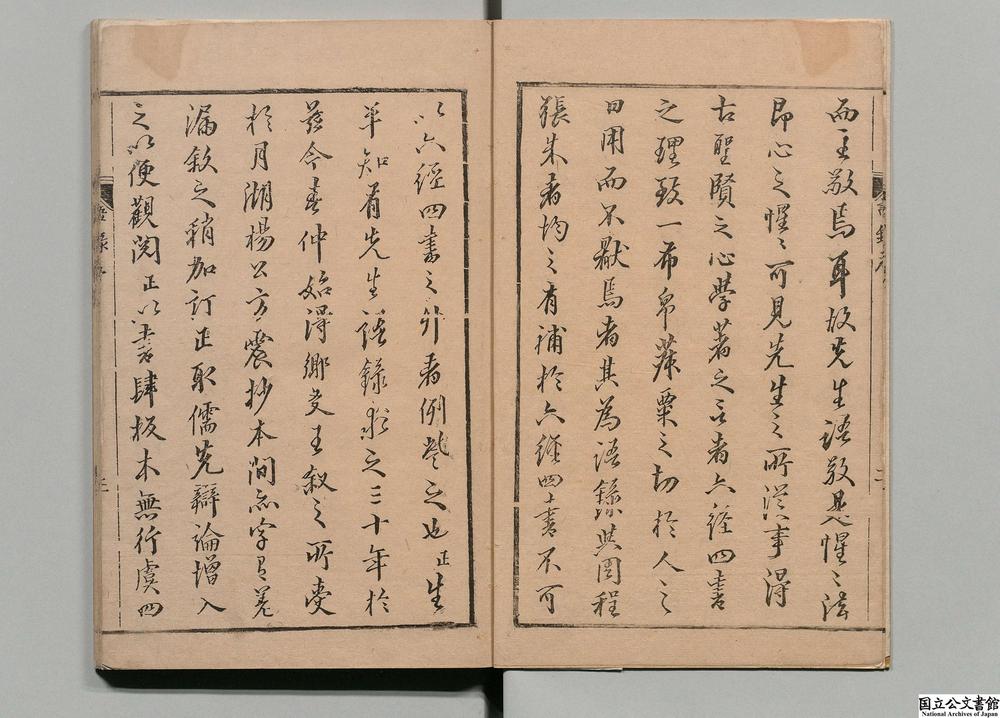 而主敬焉耳故先生語敬是惺〻法
即心之惺〻可見先生之所從事得
古聖賢之心學著之言者六經四書
之理致一布帛菽粟之切於人之
日用而不厭焉者其為語錄與周程
張朱者均之有補於六經四書不可
以六經四書之外者例營之也正生
平知有先生語錄求之三十年於
茲今春仲始得鄉史王叙之所
於月湖楊公方震抄本間亦字有差
漏欽之稍加訂正取儒先辯論增入
之以便觀閱正以書肆板本無行虞四
國立公文書館
National Archives of Japan